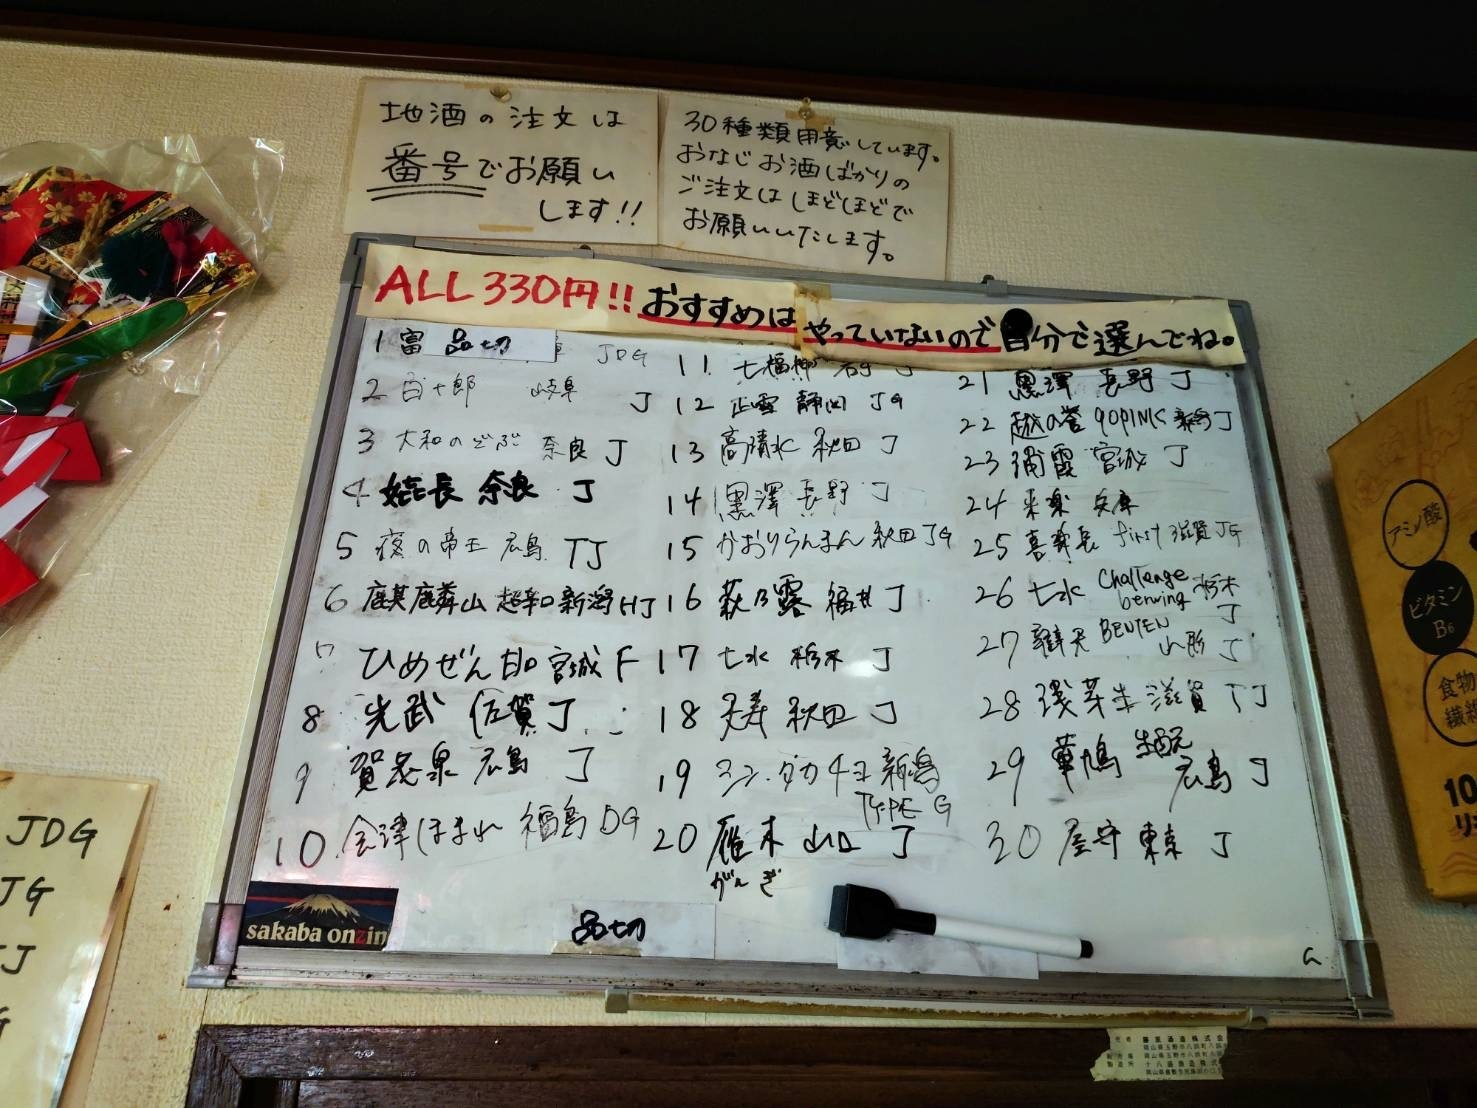 地酒の注文は
番号でお願い
します!!
30種類用意しています。
おなじお酒ばかりの
ご注文はしばしばで
お願いいたします。
ALL 330円!! おすすめは やっていないので自分で選んでね。
1 富 品切 JDG
2 百十郎 岐阜 J
3 大和のどぶ 奈良 J
4 嬉長 奈良 J
5 夜の帝王 広島 TJ
6 麒麟山 超辛口 新潟 HJ
7 ひめぜん 甘口 宮城 F
8 光武 佐賀 J
9 賀茂泉 広島 J
10 会津ほまれ 福島 DG
11 七福神 岩手 J
12 正雪 静岡 JG
13 高清水 秋田 J
14 黒澤 長野 J
15 かおりらんまん 秋田 JG
16 萩乃露 福井 J
17 七水 栃木 J
18 天寿 秋田 J
19 シン・タカチヨ 新潟
TYPE G
20 雁木 山口 J
がんぎ
21 黒澤 長野 J
22 越の誉 90PINK 新潟 J
23 浦霞 宮城 J
24 来楽 兵庫
25 喜楽長 first 滋賀 JG
26 七水 Challenge
berwing 栃木
J
27 辯天 BENTEN
山形 J
28 浅芽生 滋賀 TJ
29 華鳩 生酛
広島 J
30 屋守 東京 J
sakaba onzin
品切
JDG
JG
J
G
アミノ酸
ビタミン
B6
食物
繊維
10